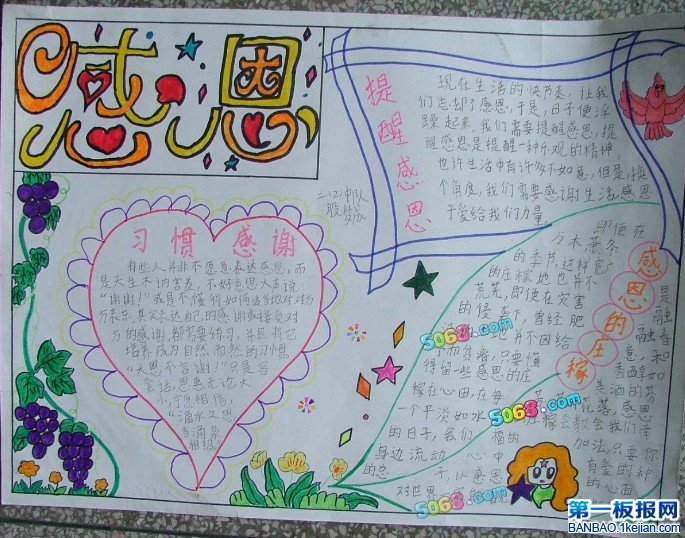 感恩
提醒感恩
现在生活的快节奏，让我
们忘却了感恩，于是，日子便浮
躁起来，我们需要提醒感恩，提
醒感恩是提醒一种乐观的精神
也许生活中有许多不如意，但是，换
个角度，我们需要感谢生活感恩
于爱给我们力量
二(2)中队
习惯 感谢
有些人并非不愿意表达感恩，而
是天生木讷害羞，不好意思大声说：
“谢谢！”或是不懂得如何适当地对对方
方表示，其实表达自己的感谢或接受对
方的感谢，都需要练习，并且将它
培养成为自然而然的习惯
“大恩不言谢！”只是客
套话，恩惠无论大
小，宁愿相信，
“滴水之恩
当涌泉
相报
感恩的庄稼
即便在
万木萧条
的季节，这样宽广
的庄稼地也并不
荒芜，即使在灾害
的侵害下，曾经肥
地并不因给
得留一些感恩的庄
稼在心田，在每
一个平淡如水
的日子，我们
身边流动
对世界
是
融融春
意，和
香醇如
美酒的芬
花落，感恩
稼会教会我们幸
福的 加法，只要你
心中 有爱的神
以感恩 的心面
5068.com
5068.com
5068.com
5068.com
第一板报网
BANBAO.1kejian.com